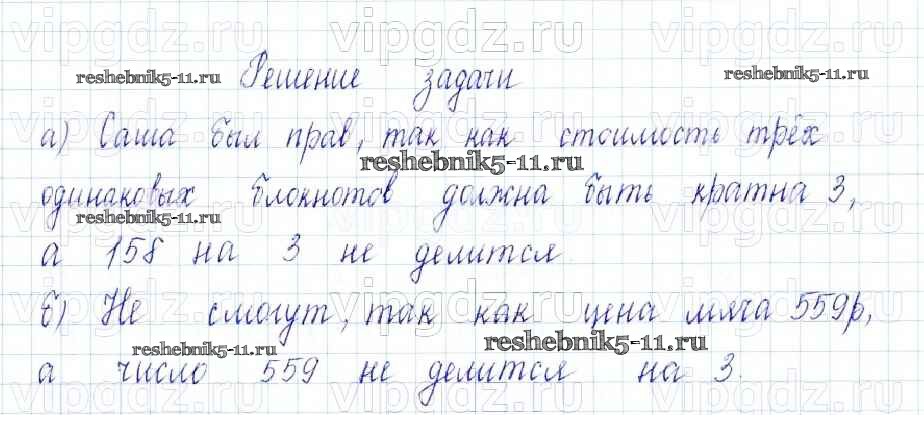 vipgdz.ru vipgdz.ru vipgdz.ru
Решение задачи
reshebnik5-11.ru reshebnik5-11.ru
а) Саша был прав, так как стоимость трёх
reshebnik5-11.ru
одинаковых блокнотов должна быть кратна 3,
reshebnik5-11.ru
а 158 на 3 не делится.
vipgdz.ru vipgdz.ru vipgdz.ru
б) Не смогут, так как цена мяча 559р,
reshebnik5-11.ru reshebnik5-11.ru
а число 559 не делится на 3.
vipgdz.ru vipgdz.ru vipgdz.ru